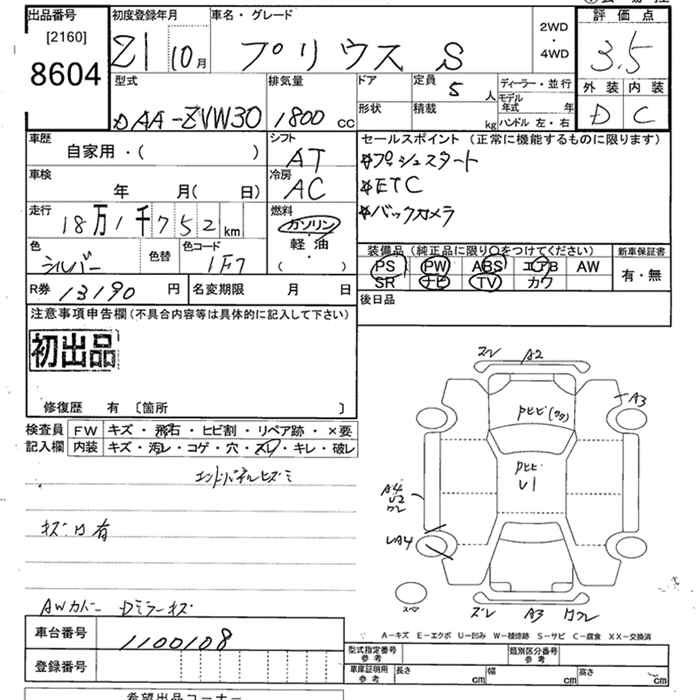 出品番号
[2160]
8604
初度登録年月
21 10月
車名・グレード
プリウス S
2WD
・
4WD
評価点
3.5
外装 内装
D C
型式
DAA-ZVW30
排気量
1800 cc
ドア
定員
5 人
形状
積載
kg
ディーラー・並行
モデル年式 年
ハンドル 左・右
車歴
自家用・( )
シフト
AT
車検
年 月( 日)
冷房
AC
走行
18万1千752km
燃料
ガソリン
・
軽・油
( )
色
シルバー
色替
色コード
1F7
セールスポイント (正常に機能するものに限ります)
☆プッシュスタート
☆ETC
☆バックカメラ
装備品(純正品に限り○をつけてください)
新車保証書
PS PW ABS エアB AW
SR ナビ TV カワ
有・無
R券 13190 円
名変期限 月 日
後日品
注意事項申告欄(不具合内容等は具体的に記入して下さい)
初出品
修復歴 有 〔箇所 〕
検査員
記入欄
FW キズ・飛石・ヒビ割・リペア跡・×要
内装 キズ・汚レ・コゲ・穴・スレ・キレ・破レ
エンドパネルヒズミ
キズ凹有
AWカバー Dミラーキズ
ズレ A2
A3
U1
A4
U2
A4
スペ
ズレ A3
A-キズ E-エクボ U-凹み W-補修跡 S-サビ C-腐食 XX-交換済
車台番号
1100108
登録番号
型式指定番号
参考
類別区分番号
参考
車庫証明用
参考
長さ cm
幅 cm
高さ cm
希望出品コーナー